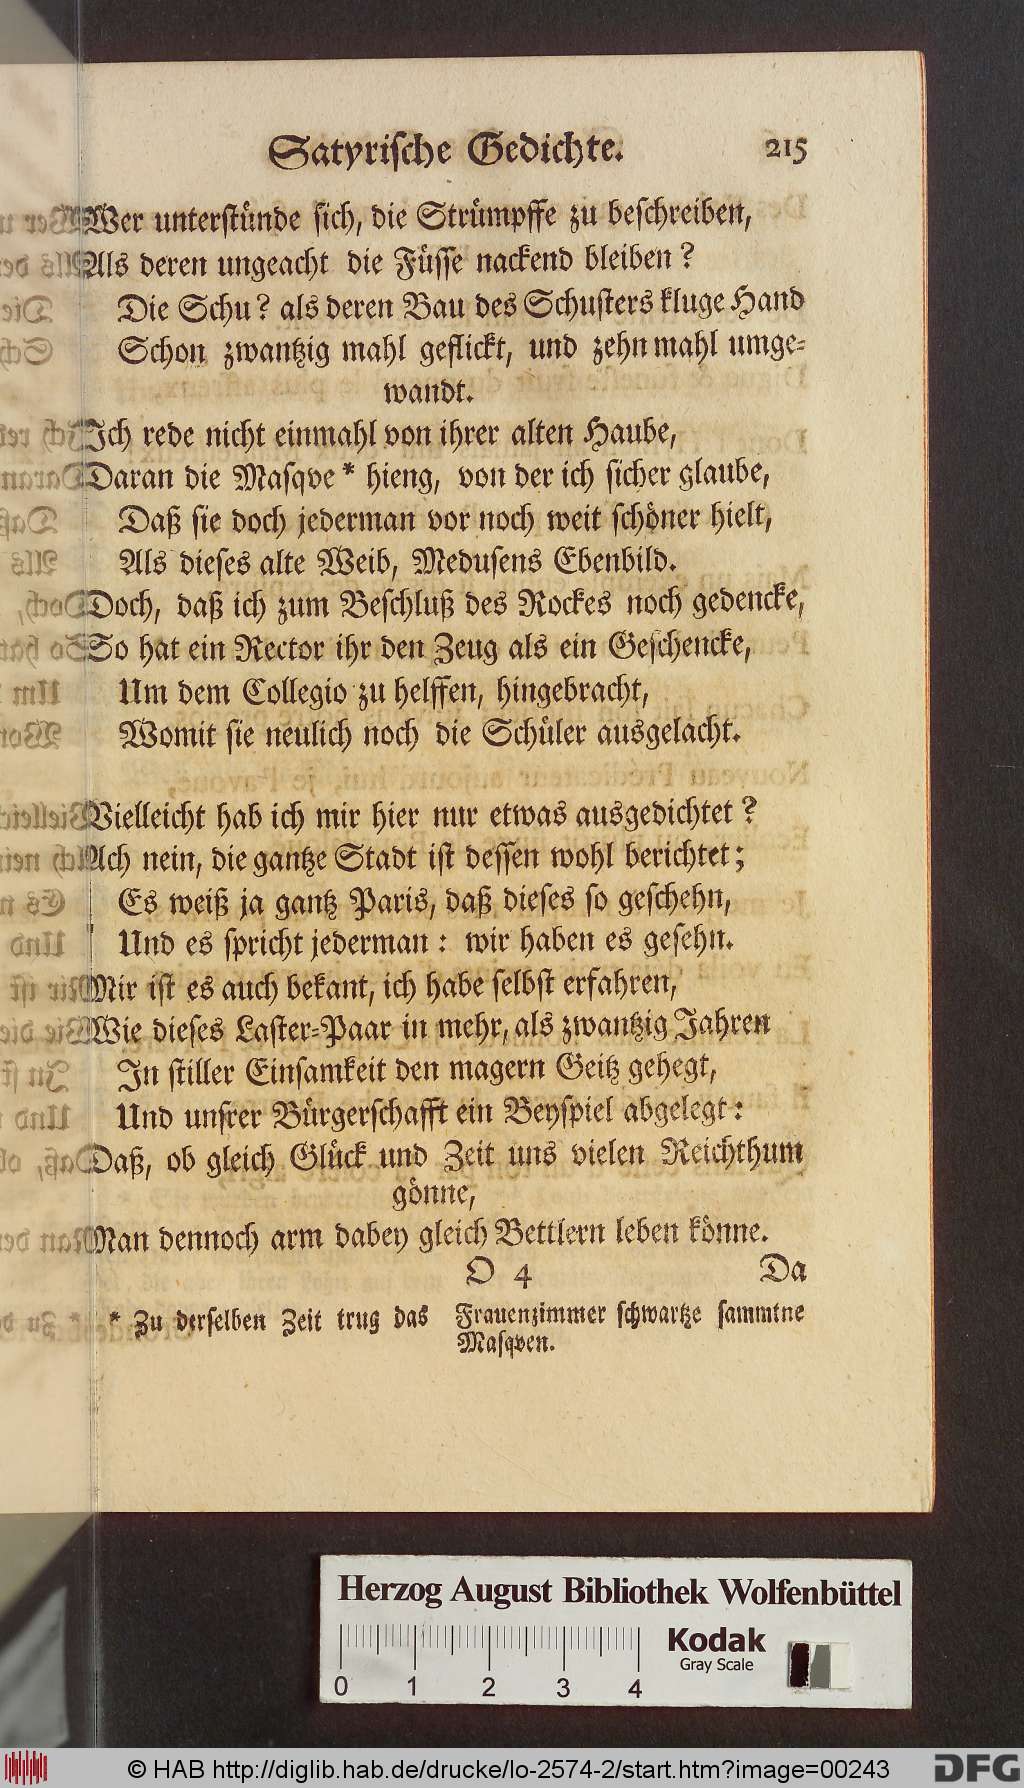 Satyrische Gedichte. 215
Wer unterstünde sich, die Strümpffe zu beschreiben,
Als deren ungeacht die Füsse nackend bleiben?
Die Schu? als deren Bau des Schusters kluge Hand
Schon zwantzig mahl geflickt, und zehn mahl umge-
wandt.
Ich rede nicht einmahl von ihrer alten Haube,
Daran die Masqve * hieng, von der ich sicher glaube,
Daß sie doch jederman vor noch weit schöner hielt,
Als dieses alte Weib, Medusens Ebenbild.
Doch, daß ich zum Beschluß des Rockes noch gedencke,
So hat ein Rector ihr den Zeug als ein Geschencke,
Um dem Collegio zu helffen, hingebracht,
Womit sie neulich noch die Schüler ausgelacht.
Vielleicht hab ich mir hier nur etwas ausgedichtet?
Ach nein, die gantze Stadt ist dessen wohl berichtet;
Es weiß ja gantz Paris, daß dieses so geschehn,
Und es spricht jederman: wir haben es gesehn.
Mir ist es auch bekant, ich habe selbst erfahren,
Wie dieses Laster-Paar in mehr, als zwantzig Jahren
In stiller Einsamkeit den magern Geitz gehegt,
Und unsrer Bürgerschafft ein Beyspiel abgelegt:
Daß, ob gleich Glück und Zeit uns vielen Reichthum
gönne,
Man dennoch arm dabey gleich Bettlern leben könne.
O 4 Da
* Zu derselben Zeit trug das Frauenzimmer schwartze sammtne
Masqven.
Herzog August Bibliothek Wolfenbüttel
Kodak
Gray Scale
0 1 2 3 4
© HAB http://diglib.hab.de/drucke/lo-2574-2/start.htm?image=00243
DFG